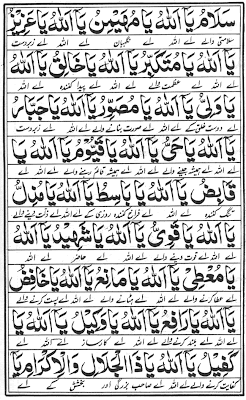 سَلَامُ يَا اَللهُ يَا مُهَيْمِنُ يَا اَللهُ يَا عَزِيْزُ
سلامتی والے اے اللہ اے نگہبان اے اللہ اے زبردست
يَا اَللهُ يَا مُتَكَبِّرُ يَا اَللهُ يَا خَالِقُ يَا اَللهُ
اے اللہ اے عظمت والے اے اللہ اے پیدا کنندہ اے اللہ
يَا وَلِيُّ يَا اَللهُ يَا مُصَوِّرُ يَا اَللهُ يَا جَبَّارُ
اے اللہ اے صورت بنانے والے اے اللہ اے زبردست
يَا اَللهُ يَا حَيُّ يَا اَللهُ يَا قَيُّوْمُ يَا اَللهُ يَا
اے اللہ اے ہمیشہ اے اللہ اے ہمیشہ قائم رہنے والے اے اللہ اے
قَابِضُ يَا اَللهُ يَا بَاسِطُ يَا اَللهُ يَا مُذِلُّ
تنگ کنندہ اے اللہ اے فراخ کنندہ روزی کے اے اللہ اے ذلت دینے والے
يَا اَللهُ يَا قَوِيُّ يَا اَللهُ يَا شَهِيْدُ يَا اَللهُ
اے اللہ اے قوت دینے والے اے اللہ اے حاضر اے اللہ
يَا مُعْطِيُ يَا اَللهُ يَا مَانِعُ يَا اَللهُ يَا خَافِضُ
اے عطا کرنے والے اے اللہ اے والے اے اللہ اے پست کرنے والے
يَا اَللهُ يَا رَافِعُ يَا اَللهُ يَا وَكِيْلُ يَا اَللهُ يَا
اے اللہ اے بلند کرنے والے اے اللہ اے کارساز اے اللہ اے
كَفِيْلُ يَا اَللهُ يَا ذَا الْجَلَالِ وَالْاِكْرَامِ يَا
کفایت کرنے والے اے اللہ اے صاحب بزرگی اور بخشش کے اے